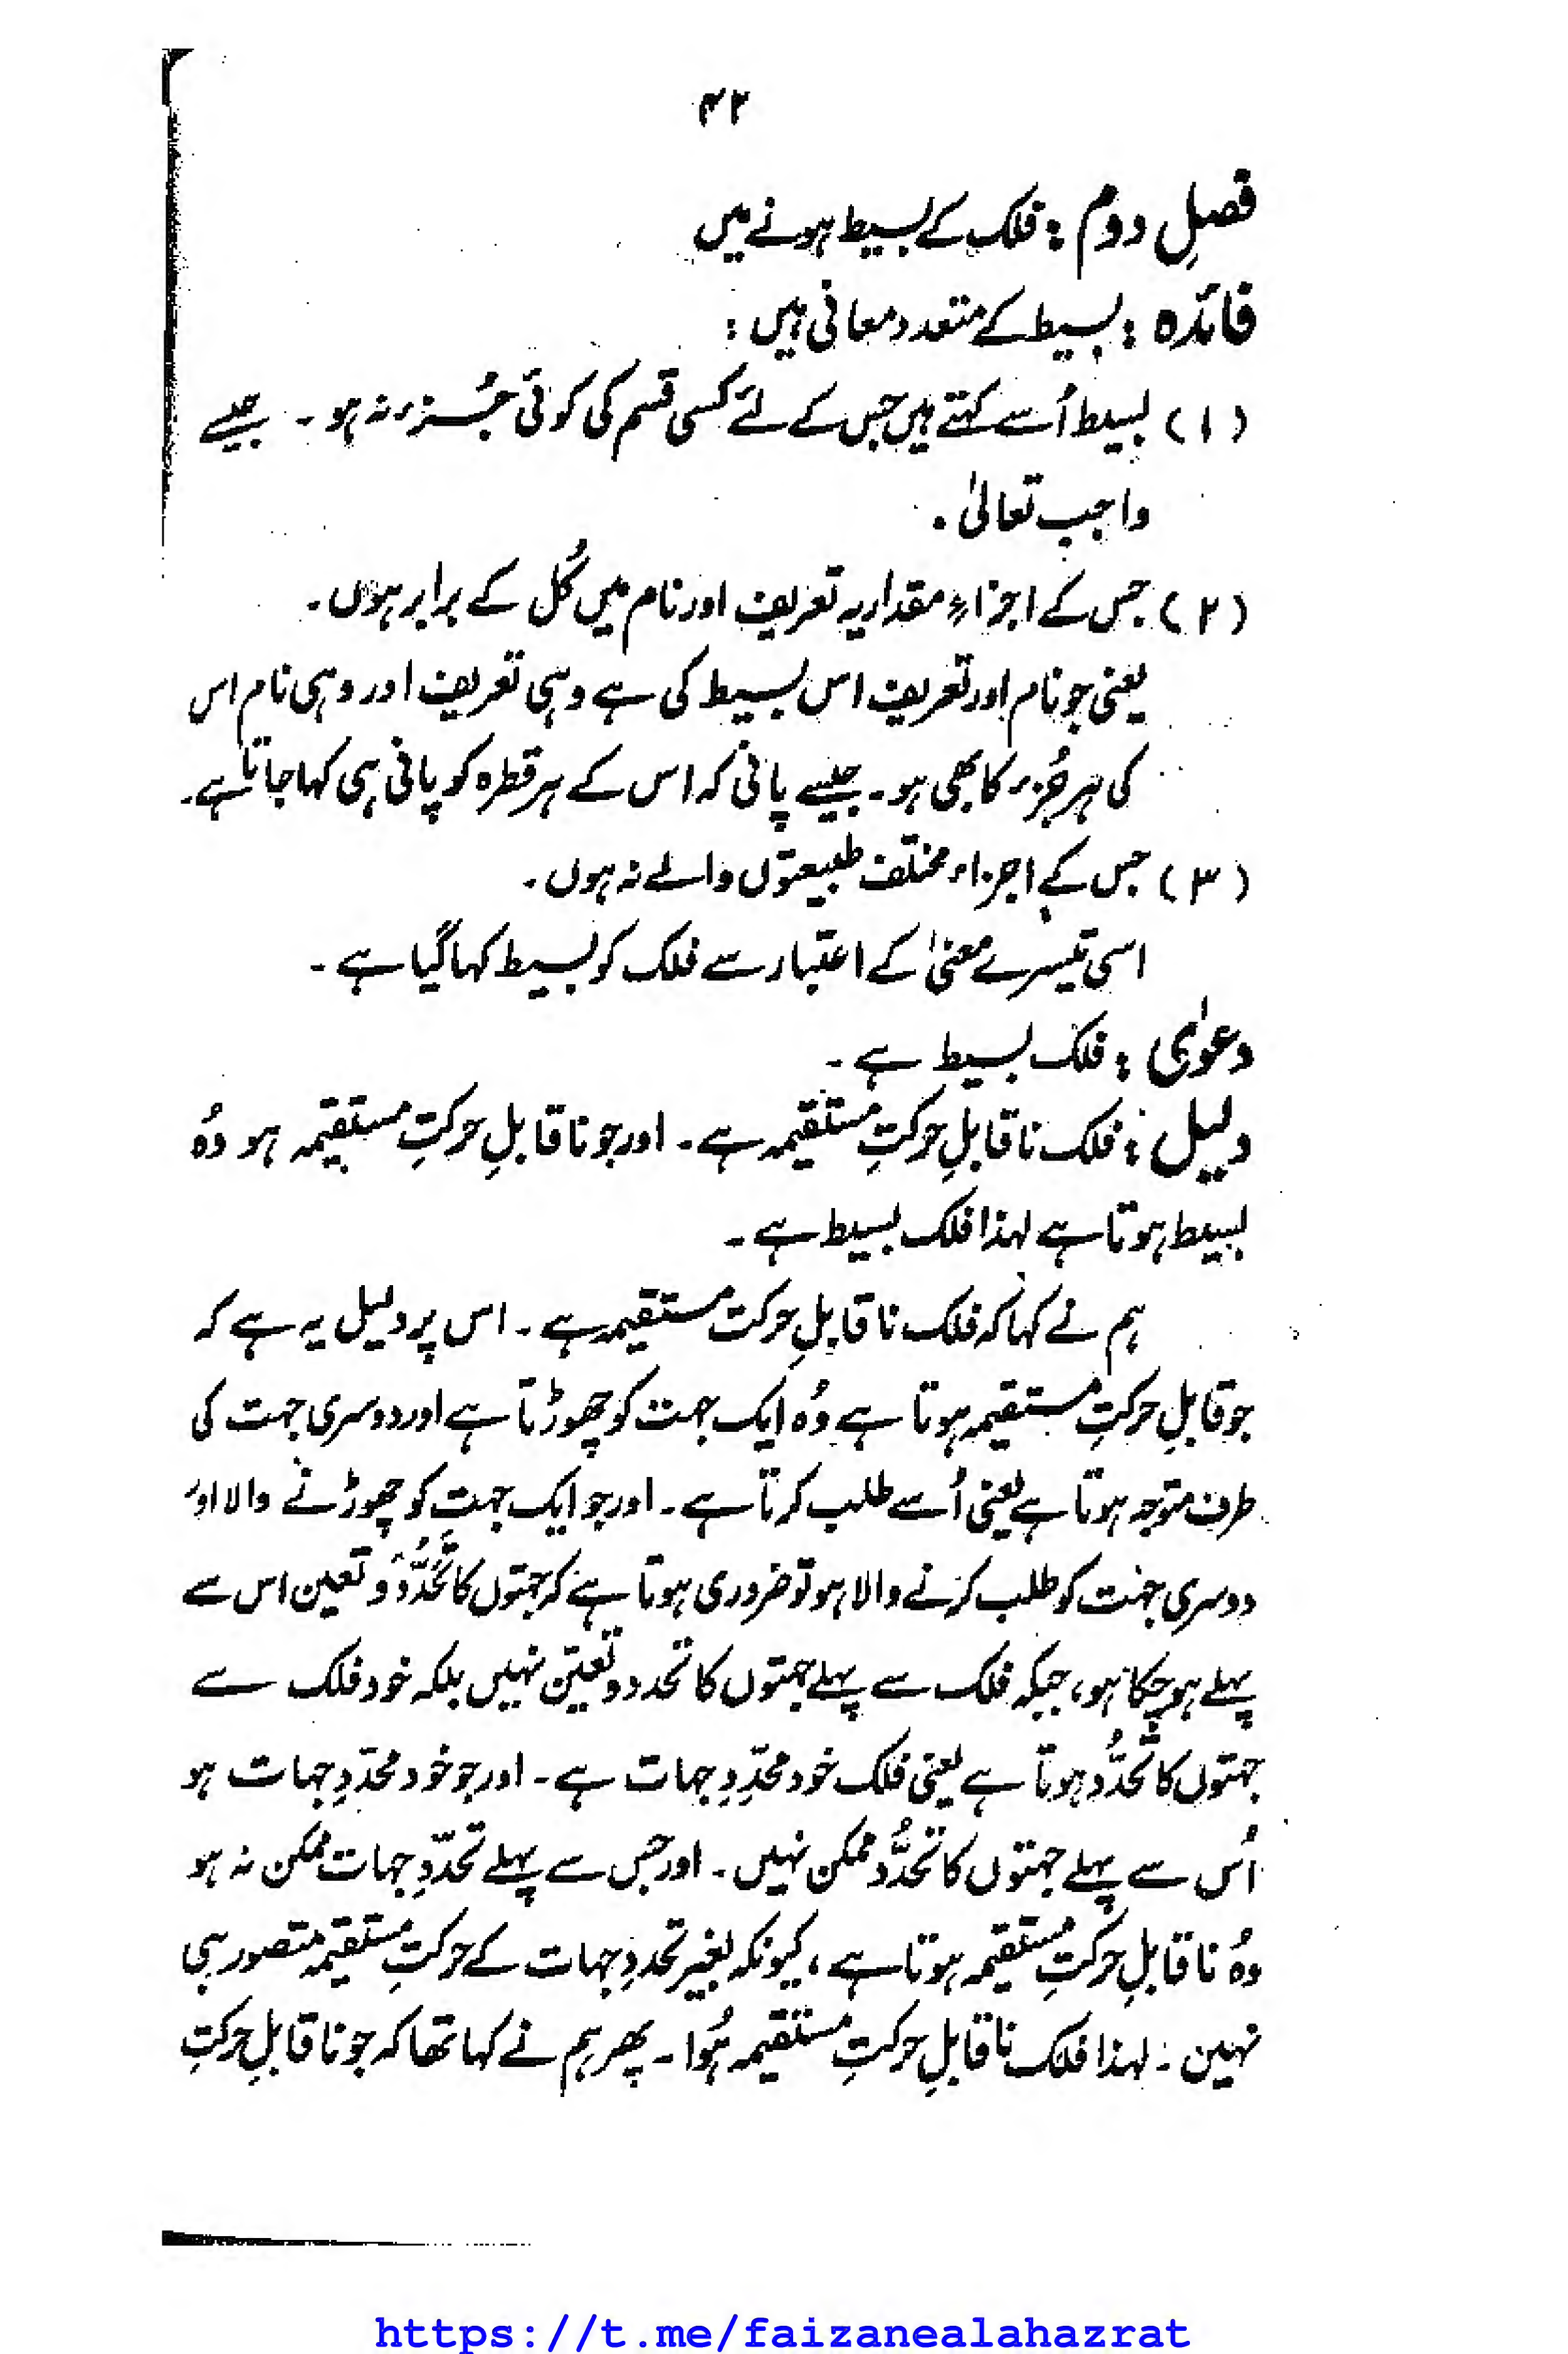 ۴۲
فصلِ دوم : فلک کے بسیط ہونے میں
فائدہ : بسیط کے متعدد معانی ہیں :
(۱) بسیط اُسے کہتے ہیں جس کے لئے کسی قسم کی کوئی جُزء نہ ہو ۔ جیسے
واجب تعالیٰ .
(۲) جس کے اجزاءِ مقداریہ تعریف اور نام میں کُل کے برابر ہوں ۔
یعنی جو نام اور تعریف اس بسیط کی ہے وہی تعریف اور وہی نام اس
کی ہر جُزء کا بھی ہو ۔ جیسے پانی کہ اس کے ہر قطرہ کو پانی ہی کہا جاتا ہے ۔
(۳) جس کے اجزاء مختلف طبیعتوں والے نہ ہوں ۔
اسی تیسرے معنیٰ کے اعتبار سے فلک کو بسیط کہا گیا ہے ۔
دعوٰی : فلک بسیط ہے ۔
دلیل : فلک ناقابلِ حرکتِ مستقیمہ ہے ۔ اور جو ناقابلِ حرکتِ مستقیمہ ہو وُہ
بسیط ہوتا ہے لہذا فلک بسیط ہے ۔
ہم نے کہا کہ فلک ناقابلِ حرکت مستقیمہ ہے ۔ اس پر دلیل یہ ہے کہ
جو قابلِ حرکتِ مستقیمہ ہوتا ہے وُہ ایک جہت کو چھوڑتا ہے اور دوسری جہت کی
طرف متوجہ ہوتا ہے یعنی اُسے طلب کرتا ہے ۔ اور جو ایک جہت کو چھوڑنے والا اور
دوسری جہت کو طلب کرنے والا ہو تو ضروری ہوتا ہے کہ جہتوں کا تَحَدُّد و تعین اس سے
پہلے ہو چکا ہو، جبکہ فلک سے پہلے جہتوں کا تحدد و تعیّن نہیں بلکہ خود فلک سے
جہتوں کا تَحَدُّد ہوتا ہے یعنی فلک خود محدِّدِ جہات ہے ۔ اور جو خود محدّدِ جہات ہو
اُس سے پہلے جہتوں کا تَحَدُّد ممکن نہیں ۔ اور جس سے پہلے تحدّدِ جہات ممکن نہ ہو
وُہ ناقابلِ حرکتِ مستقیمہ ہوتا ہے ، کیونکہ بغیر تحددِ جہات کے حرکتِ مستقیمہ متصور ہی
نہیں ۔ لہذا فلک ناقابلِ حرکتِ مستقیمہ ہُوا ۔ پھر ہم نے کہا تھا کہ جو ناقابلِ حرکتِ
https://t.me/faizanealahazrat